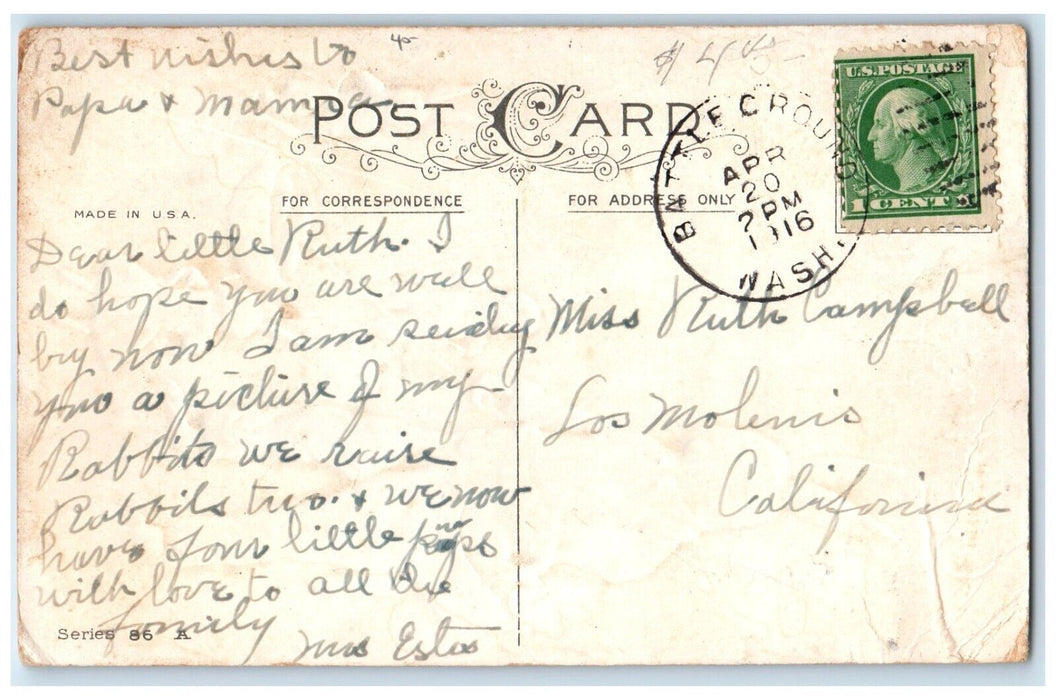 Best wishes to
Papa & Mamma
$4
POST CARD
U.S. POSTAGE
1 CENT
BATTLE GROUND
APR
20
2 PM
1916
WASH.
MADE IN U.S.A.
FOR CORRESPONDENCE
FOR ADDRESS ONLY
Dear little Ruth. I
do hope you are well
by now I am sending
you a picture of my
Rabbits we raise
Rabbits two. & we now
have four little
with love to all the
family
Mrs Estes
Miss Ruth Campbell
Los Molenis
California
Series 86 A